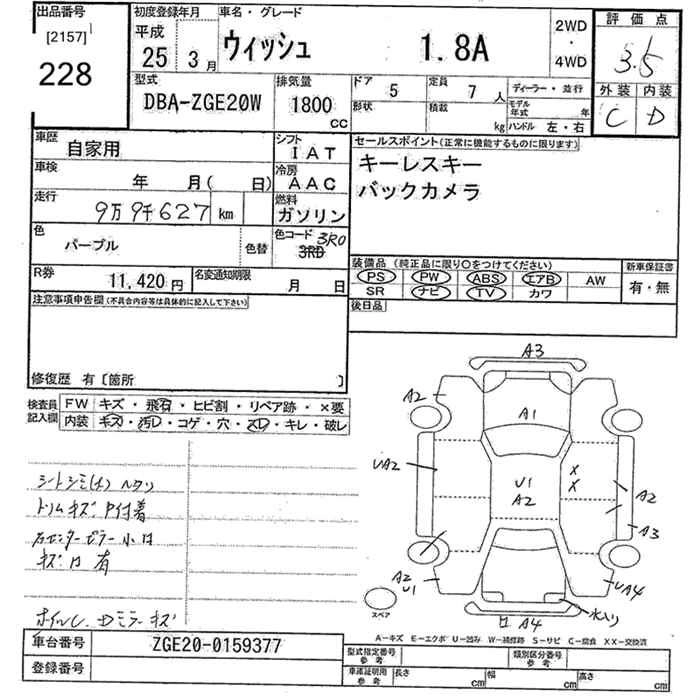 出品番号
[2157]
228
初度登録年月
平成
25年 3月
車名・グレード
ウィッシュ 1.8A
2WD
・
4WD
評価点
3.5
外装 内装
C D
型式
DBA-ZGE20W
排気量
1800
cc
ドア 5
定員 7人
形状
積載 kg
ディーラー・並行
モデル年式 年
ハンドル 左・右
車歴
自家用
シフト
IAT
車検
年 月( 日)
冷房
AAC
走行
9万9千627 km
燃料
ガソリン
色
パープル
色替
色コード 3R0
3RD
R券
11,420円
名変通知期限
月 日
セールスポイント(正常に機能するものに限ります)
キーレスキー
バックカメラ
装備品 (純正品に限り○をつけてください)
PS PW ABS エアB AW
SR ナビ TV カワ
新車保証書
有・無
後日品
注意事項申告欄(不具合内容等は具体的に記入して下さい)
修復歴 有〔箇所 〕
検査員記入欄
FW キズ・飛石・ヒビ割・リペア跡・×要
内装 キズ・汚レ・コゲ・穴・スレ・キレ・破レ
シートシミ(大) ヘタリ
トリムキズ 付着
右センターピラー小
キズ 有
ホイル ミラーキズ
A3
A2
A1
UA2
U1
A2
X
X
A2
A3
A2
U1
UA4
水入り
A4
スペア
A-キズ E-エクボ U-凹み W-補修跡 S-サビ C-腐食 XX-交換済
車台番号
ZGE20-0159377
登録番号
型式指定番号
参考
類別区分番号
参考
車庫証明用
参考
長さ cm
幅 cm
高さ cm